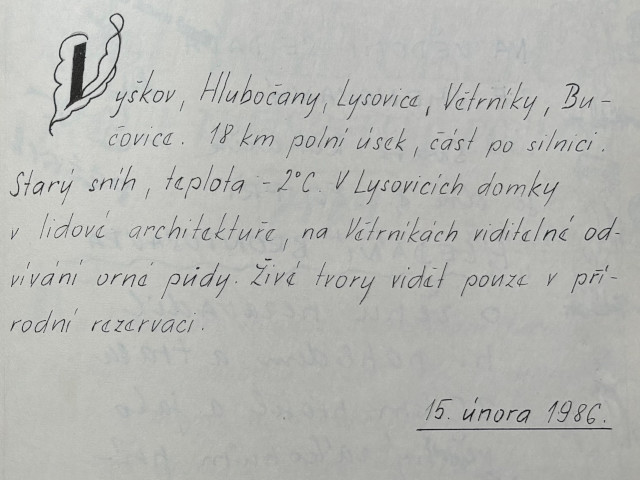 Vyškov, Hlubočany, Lysovice, Větrníky, Bu-
čovice. 18 km polní úsek, část po silnici.
Starý sníh, teplota -2°C. V Lysovicích domky
v lidové architektuře, na Větrníkách viditelné od-
vívání orné půdy. Živé tvory vidět pouze v pří-
rodní rezervaci.
15. února 1986.